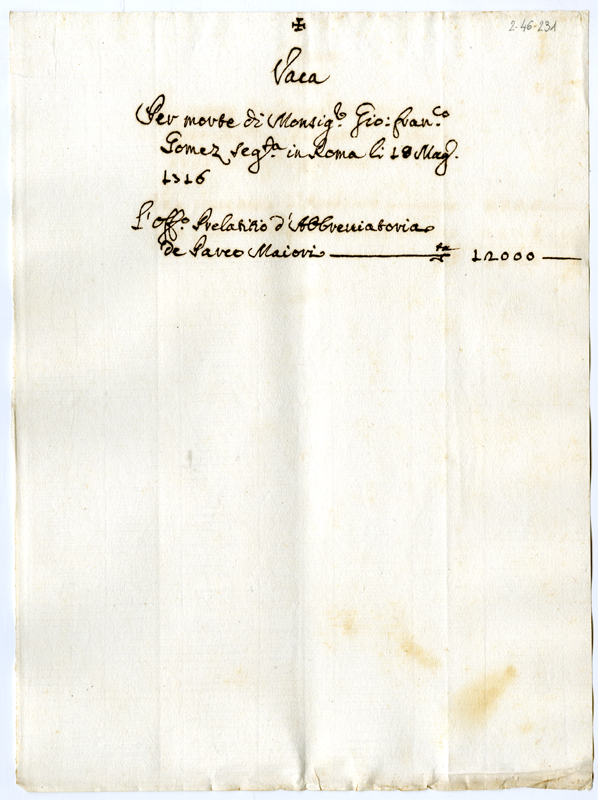 2-46-231
✠
Vaca
Per morte di Monsig.e Gio: Fran.co
Gomez seg.ta in Roma li 18 Mag.
1716
L'Off.o Prelatitio d'Abbreviatoria
de Parco Maiori 12000